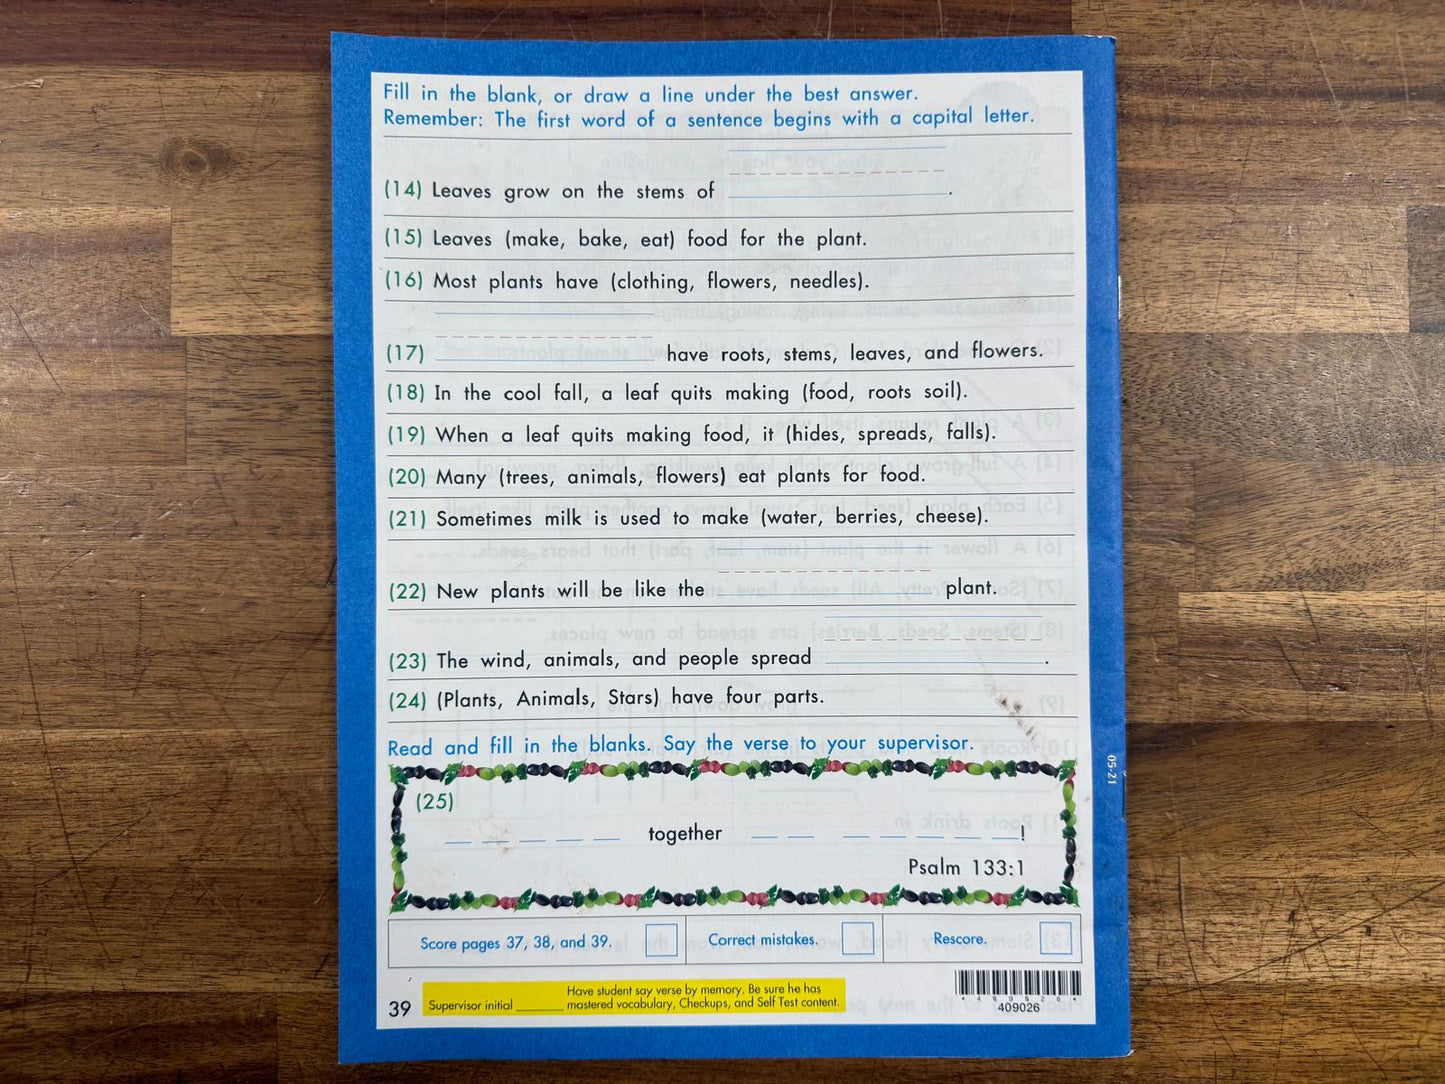 Fill in the blank, or draw a line under the best answer.
Remember: The first word of a sentence begins with a capital letter.
(14) Leaves grow on the stems of .
(15) Leaves (make, bake, eat) food for the plant.
(16) Most plants have (clothing, flowers, needles).
(17) have roots, stems, leaves, and flowers.
(18) In the cool fall, a leaf quits making (food, roots soil).
(19) When a leaf quits making food, it (hides, spreads, falls).
(20) Many (trees, animals, flowers) eat plants for food.
(21) Sometimes milk is used to make (water, berries, cheese).
(22) New plants will be like the plant.
(23) The wind, animals, and people spread .
(24) (Plants, Animals, Stars) have four parts.
Read and fill in the blanks. Say the verse to your supervisor.
(25)
_ _ _ _ _ together _ _ _ _ _ _ _!
Psalm 133:1
Score pages 37, 38, and 39. Correct mistakes. Rescore.
39 Supervisor initial ________ Have student say verse by memory. Be sure he has
mastered vocabulary, Checkups, and Self Test content.
409026
05-21